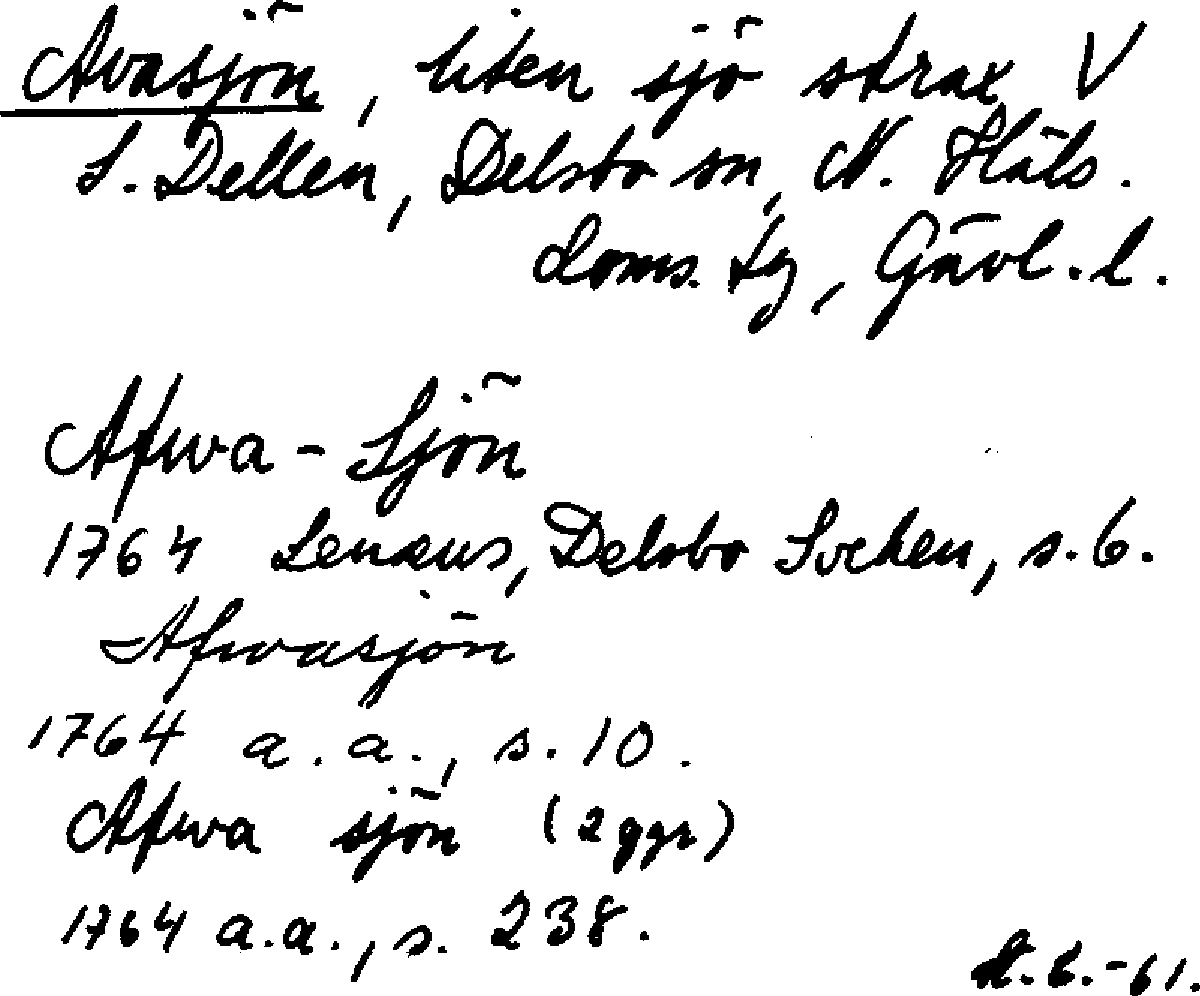 Avasjön, liten sjö strax V
S. Dellen, Delsbo sn, N. Häls.
doms. tg, Gävl. l.
Afwa-Sjön
1764 Lenæus, Delsbo Socken, s. 6.
Afwasjön
1764 a.a., s. 10.
Afwa sjön (2 ggr)
1764 a.a., s. 238.
-61.